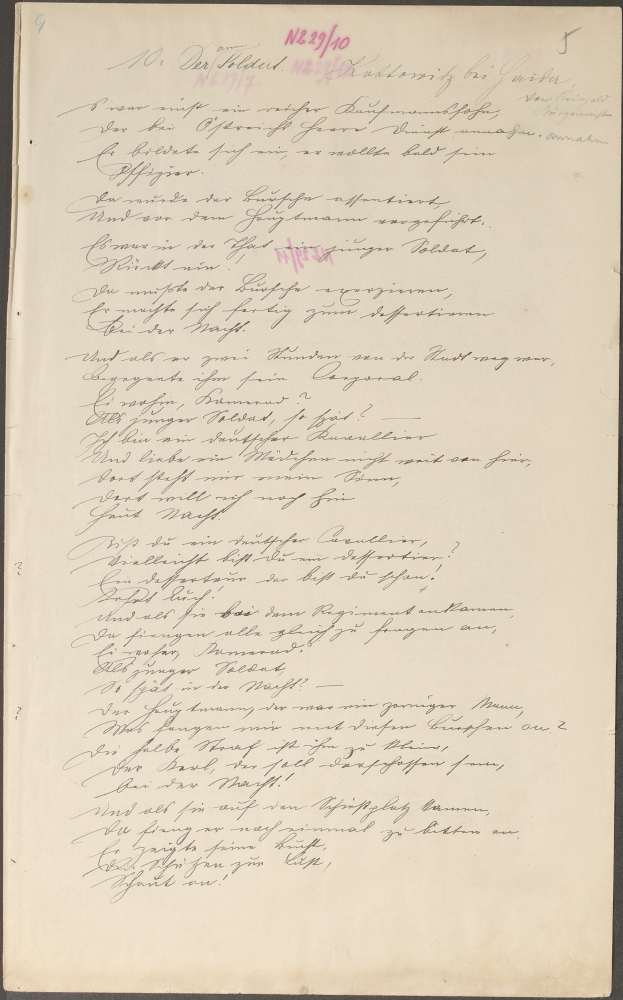 9
NL 29/10
5
10. Der arme Soldat. Kottowitz bei Gaida
NL 17/7
S war einst ein reicher Kaufmannssohn,
Der bei Östreichs Heere Dienst annahm. annahm
Er bildete sich ein, er wollte bald sein
Offizier.
Da wurde der Bursche assentiert,
Und vor dem Hauptmann vorgeführt.
Es war in der That ein junger Soldat,
Rückt ein!
Da mußte der Bursche exerzieren,
Er machte sich fertig zum dessertieren
Bei der Nacht.
Und als er zwei Stunden von der Stadt weg war,
Begegnete ihm sein Corporal.
Ei wohin, Kamerad?
Als junger Soldat, so spät? —
Ich bin ein deutscher Kavallier
Und liebe ein Mädchen nicht weit von hier,
Dort steht mir mein Sinn,
Dort will ich noch hin
Heut Nacht.
Bist du ein deutscher Cavallier,
Vielleicht bist du ein dessertier?
Ein desserteur der bist du schon!
Und als sie bei dem Regiment ankamen,
Da fiengen alle gleich zu fragen an,
Ei woher, Kamerad?
Als junger Soldat,
So spät in der Nacht? —
Der Hauptmann, der war ein zorniger Mann,
Was fangen wir mit diesem Burschen an?
Die halbe Straf ist ihm zu klein,
Der Kerl, der soll derschossen sein,
Bei der Nacht!
Und als sie auf den Schießplatz kamen,
Da fieng er noch einmal zu bitten an
Er zeigte seine Brust,
Den Schützen zur Lust,
Schaut an!